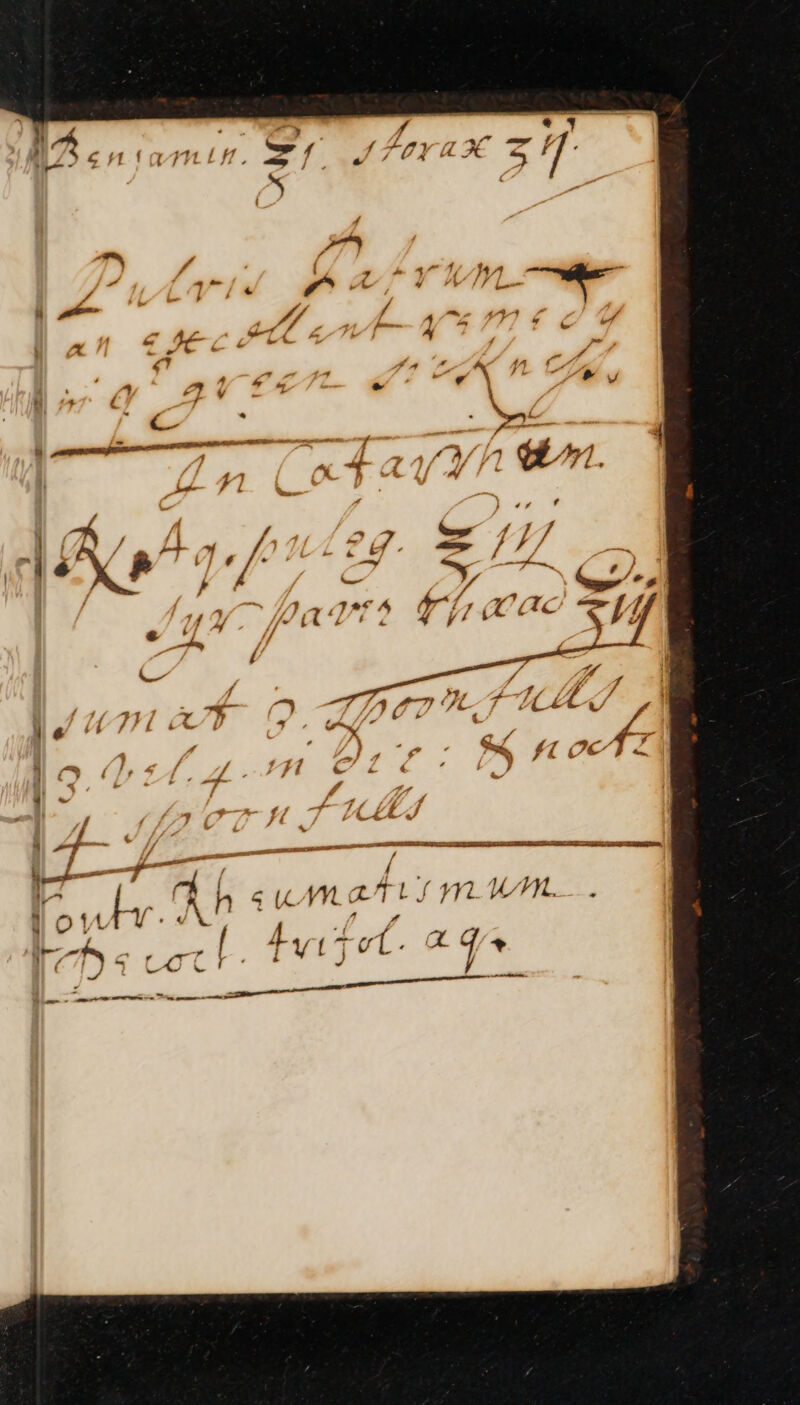 Benjamin. ℥j. storax ʒij.
Pulvis Patrum
an excellent remedy
in ye green Sickness,
In Catarrhum.
℞ Aq. puleg. ℥iij
Syr papa Rhœad ℥ij
sumat 3. spoonfulls
3. vel. 4. in die: & nocte
4 spoonfulls
Contr. Rheumatismum.
Decoct. trifol. aq.